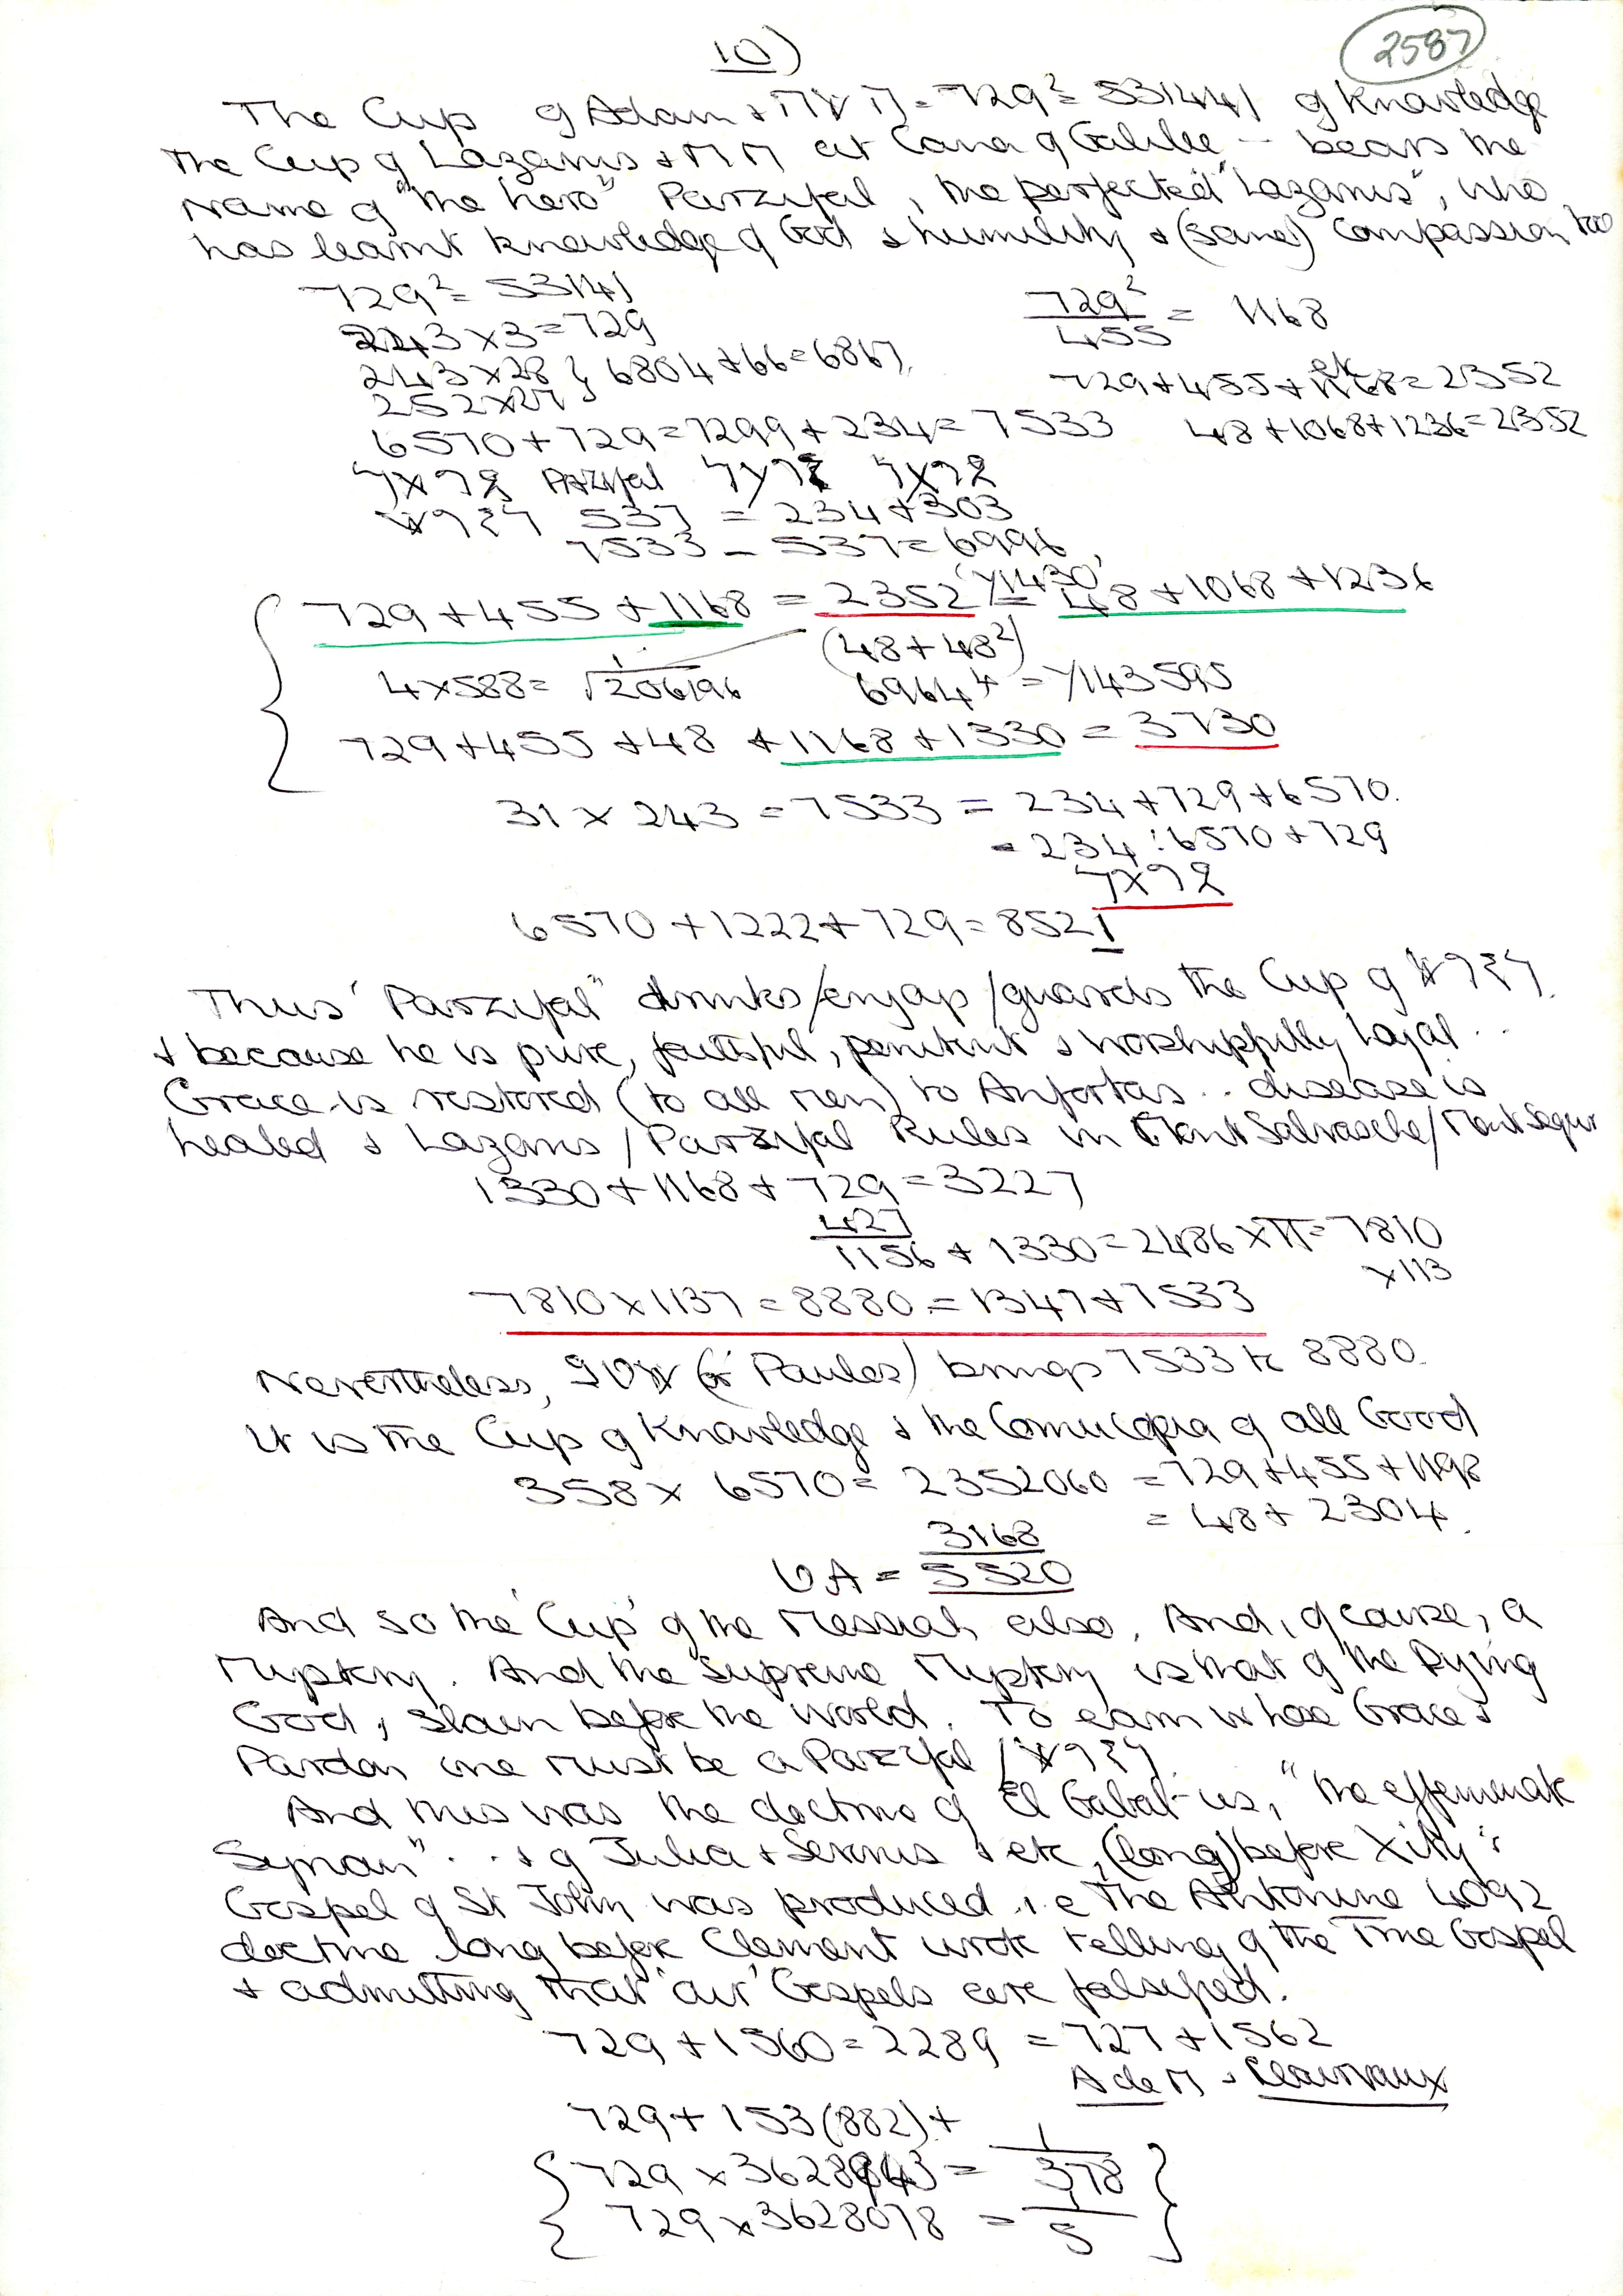 10)
2587
The Cup g Adam + = 729² = 531441 g Knowledge
The Cup g Lazarus + MM at Cana g Galilee - bears the
Name g "the hero" Parzifal, the perfected "Lazarus", who
has learnt knowledge g God & humility & (sane) compassion too
729² = 53141
243 x 3 = 729
243 x 28 } 6804 + 66 = 6867.
252 x 27
729² / 455 = 1168
729 + 455 + 1168 = 2352
6570 + 729 = 7299 + 234 = 7533
48 + 1068 + 1236 = 2352
Parzifal
537 = 234 + 303
7533 - 537 = 6996
729 + 455 + 1168 = 2352 = 48 + 1068 + 1236
(48 + 48²)
4 x 588 = 1/√206196
6964⁴ = 143595
729 + 455 + 48 + 1168 + 1330 = 3730
31 x 243 = 7533 = 234 + 729 + 6570.
= 234 : 6570 + 729
6570 + 1222 + 729 = 8521
Thus "Parzifal" drinks/enjoys/guards the Cup g
& because he is pure, faithful, penitent & worshipfully loyal..
Grace is restored (to all men) to Anfortas.. disease is
healed & Lazarus / Parzifal Rules in Mont Salvasche/Mont Segur
1330 + 1168 + 729 = 3227
427
1156 + 1330 = 2486 x π = 7810
x 113
7810 x 1137 = 8880 = 1347 + 7533
Nevertheless, (or Paules) brings 7533 to 8880.
It is the Cup g Knowledge & the Cornucopia g all Good
358 x 6570 = 2352060 = 729 + 455 + 1198
= 48 + 2304.
3168
UA = 5520
And so the 'Cup' g the Messiah also. And, g course, a
Mystery. And the Supreme Mystery is that g the Dying
God, slain before the World. To earn whose Grace &
Pardon one must be a Parzifal /
And this was the doctrine g El Gabal-us, "the effeminate
Syrian"... & g Julia & Severus & etc, (long) before Xity's
Gospel g St John was produced i.e The Antonine 4092
doctrine long before Clement wrote telling g the True Gospel
& admitting that 'our' Gospels are falsified.
729 + 1560 = 2289 = 727 + 1562
A de M & Clairvaux
729 + 153 (882) +
729 x = 1/378
729 x 3628078 = 1/5